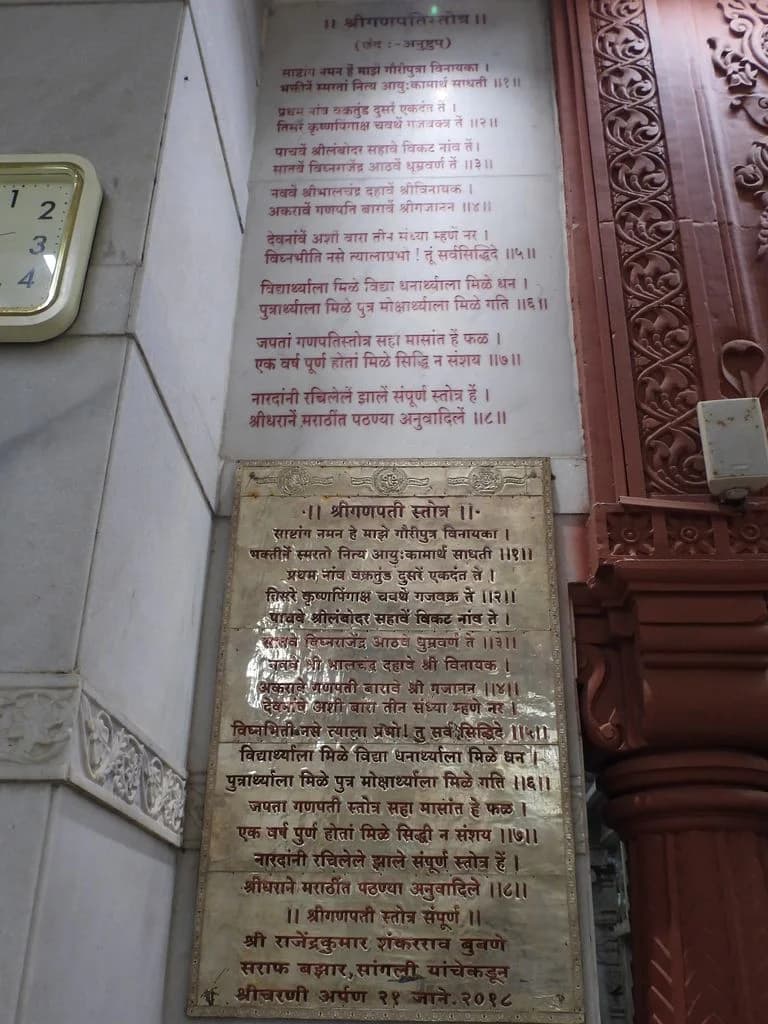 1
2
3
4
॥ श्रीगणपतिस्तोत्र ॥
(छंद :- अनुष्टुप्)
साष्टांग नमन हें माझें गौरीपुत्रा विनायका ।
भक्तीनें स्मरतां नित्य आयुःकामार्थ साधती ॥१॥
प्रथम नांव वक्रतुंड दुसरें एकदंत तें ।
तिसरें कृष्णपिंगाक्ष चवथें गजवक्त्र तें ॥२॥
पाचवें श्रीलंबोदर सहावें विकट नांव तें।
सातवें विघ्नराजेंद्र आठवें धूम्रवर्ण तें ॥३॥
नववें श्रीभालचंद्र दहावें श्रीविनायक ।
अकरावें गणपति बारावें श्रीगजानन ॥४॥
देवनांवें अशीं बारा तीन संध्या म्हणे नर ।
विघ्नभीति नसे त्यालाप्रभो ! तूं सर्वसिद्धिदे ॥५॥
विद्यार्थ्याला मिळे विद्या धनार्थ्याला मिळे धन ।
पुत्रार्थ्याला मिळे पुत्र मोक्षार्थ्याला मिळे गति ॥६॥
जपतां गणपतिस्तोत्र सहा मासांत हें फळ ।
एक वर्ष पूर्ण होतां मिळे सिद्धि न संशय ॥७॥
नारदांनी रचिलेलें झालें संपूर्ण स्तोत्र हें ।
श्रीधरानें मराठींत पठण्या अनुवादिलें ॥८॥
॥ श्रीगणपती स्तोत्र ॥
साष्टांग नमन हे माझे गौरीपुत्र विनायका ।
भक्तीनें स्मरतो नित्य आयुःकामार्थ साधती ॥१॥
प्रथम नांव वक्रतुंड दुसरें एकदंत ते ।
तिसरे कृष्णपिंगाक्ष चवथे गजवक्र ते ॥२॥
पाचवे श्रीलंबोदर सहावें बिकट नांव ते ।
सातवे विघ्नराजेंद्र आठवे धुम्रवर्ण ते ॥३॥
नववे श्री भालचंद्र दहावे श्री विनायक ।
अकरावे गणपती बारावे श्री गजानन ॥४॥
देवनांवे अशी बारा तीन संध्या म्हणे नर ।
विघ्नभिती नसे त्याला प्रभो! तु सर्व सिद्धिदे ॥५॥
विद्यार्थ्याला मिळे विद्या धनार्थ्याला मिळे धन ।
पुत्रार्थ्याला मिळे पुत्र मोक्षार्थ्याला मिळे गति ॥६॥
जपता गणपती स्तोत्र सहा मासांत हे फळ ।
एक वर्ष पुर्ण होतां मिळे सिद्धी न संशय ॥७॥
नारदांनी रचिलेले झाले संपूर्ण स्तोत्र हें ।
श्रीधराने मराठींत पठण्या अनुवादिले ॥८॥
॥ श्रीगणपती स्तोत्र संपूर्ण ॥
श्री राजेंद्रकुमार शंकरराव बुबणे
सराफ बझार, सांगली यांचेकडून
श्रीचरणी अर्पण २१ जाने.२०१८